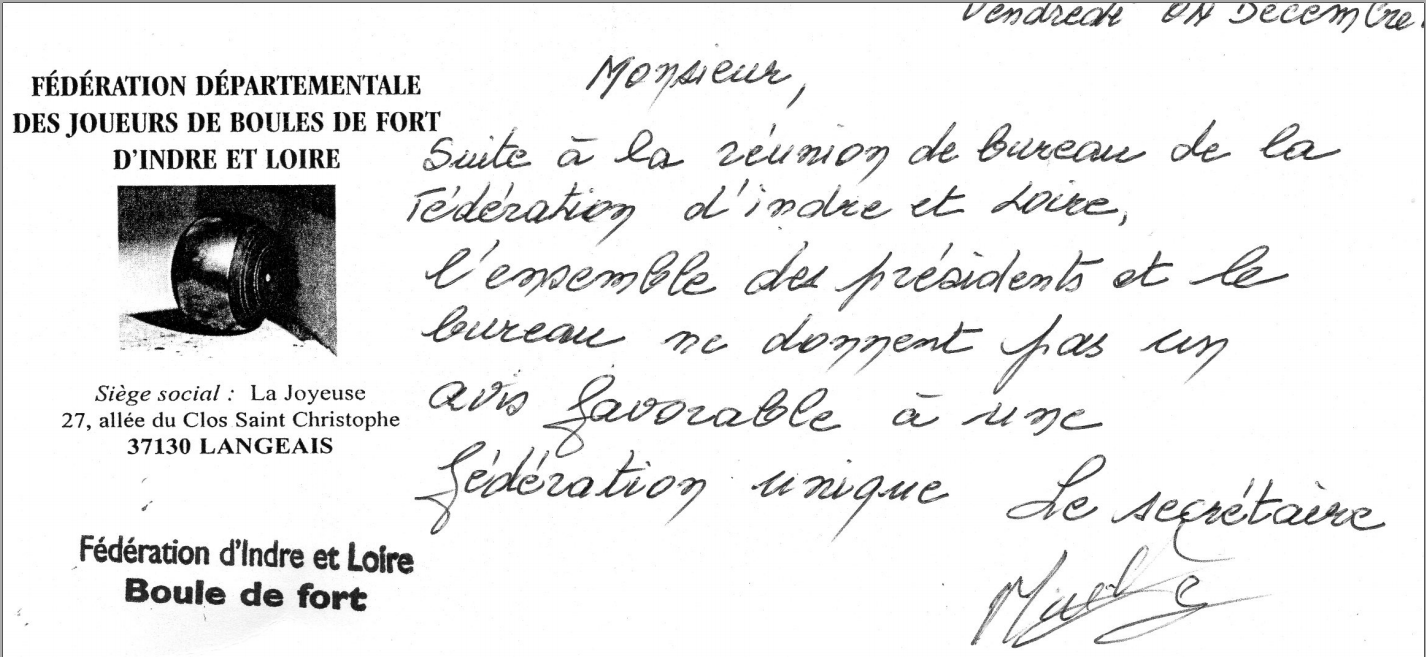 Vendredi 04 Décembre
FÉDÉRATION DÉPARTEMENTALE
DES JOUEURS DE BOULES DE FORT
D'INDRE ET LOIRE
Siège social : La Joyeuse
27, allée du Clos Saint Christophe
37130 LANGEAIS
Fédération d'Indre et Loire
Boule de fort
Monsieur,
Suite à la réunion de bureau de la
Fédération d'indre et Loire,
l'ensemble des présidents et le
bureau ne donnent pas un
avis favorable à une
fédération unique
Le secrétaire